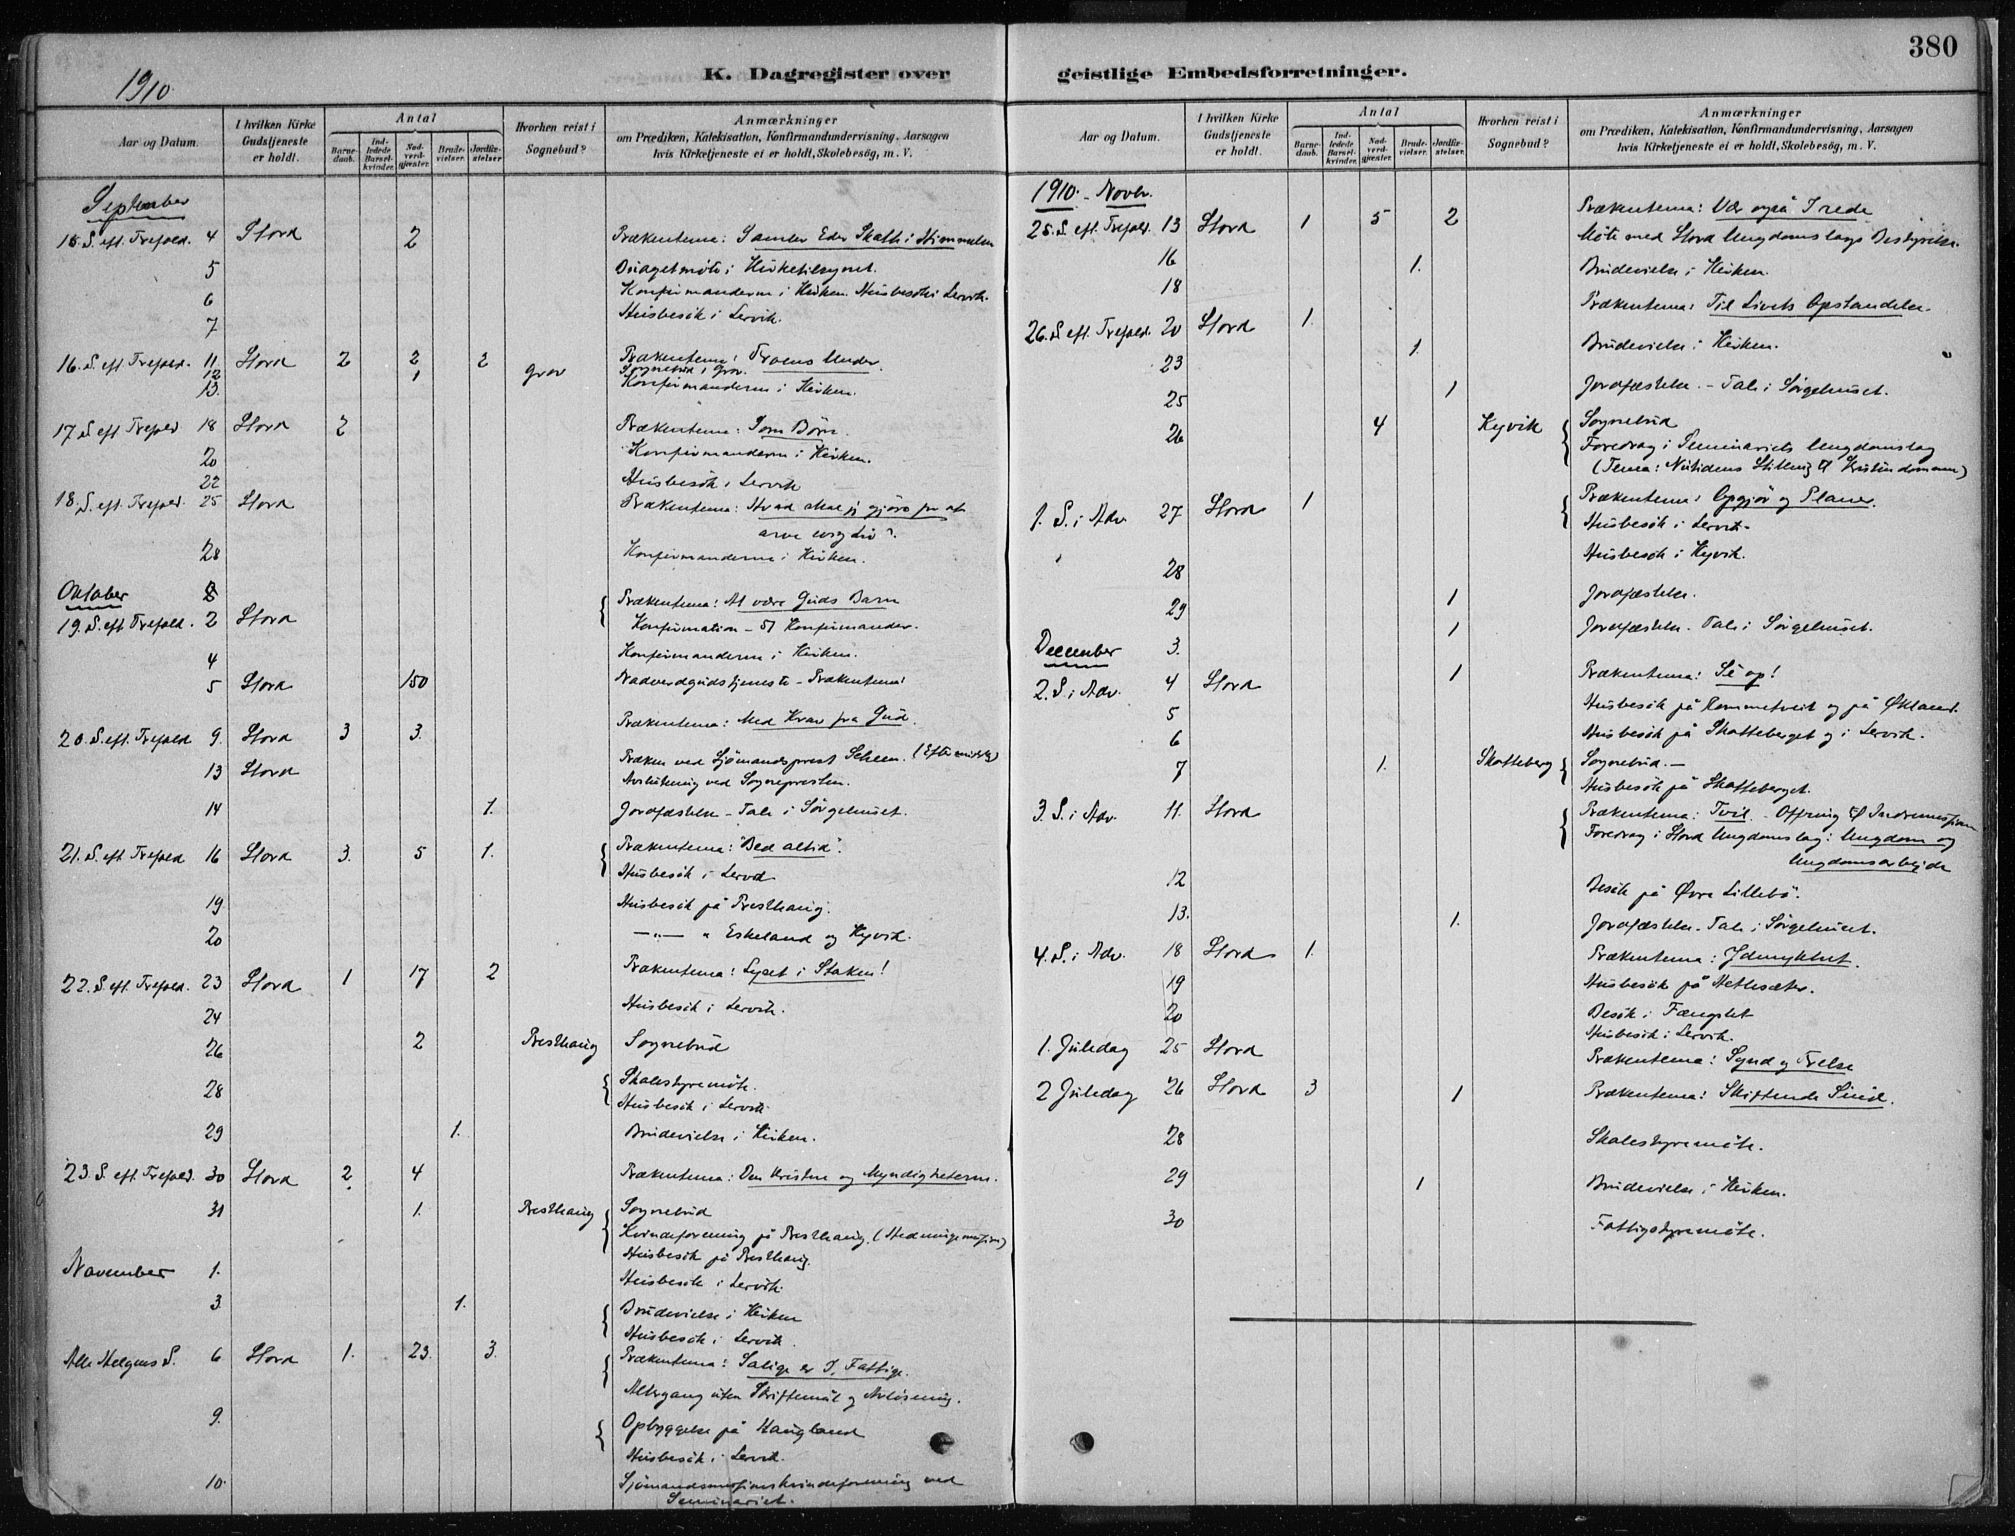 380
1910.
K. Dagregister over geistlige Embedsforretninger.
Aar og Datum.
I hvilken Kirke Gudstjeneste er holdt.
Antal
Barnedaab.
Indledede Barselkvinder.
Nadverdgjester.
Brudevielser.
Jordfæstelser.
Hvorhen reist i Sognebud?
Anmærkninger
om Prædiken, Katekisation, Konfirmandundervisning, Aarsagen
hvis Kirketjeneste ei er holdt, Skolebesøg, m. V.
September
15. S. eft. Trefold. 4 Stord 2 Prækentema: Samler Eder Skatte i Himmelen
5 Kirketilsynet.
6 Konfirmanderne i Kirken. Husbesök i Lervik.
7 Husbesök i Lervik.
16. S. eft Trefold. 11 Stord 2 2 2 Prækentema: Troens Under.
12 1 Grov Sognebud i Grov.
13. Konfirmanderne i Kirken.
17. S. eft Trefold 18 Stord 2 Prækentema: Som Børn.
20 Konfirmanderne i Kirken.
22 Husbesök i Lervik
18. S. eft. Trefold. 25 Stord Prækentema: Hvad skal jeg gjøre for at
arve evig Liv?
28 Konfirmanderne i Kirken.
Oktober
19. S. eft Trefold. 2 Stord Prækentema: At være Guds Barn
Konfirmation - 51 Konfirmander.
4 Konfirmanderne i Kirken.
5 Stord 150 Nadverdgudstjeneste - Prækentema:
20. S. eft. Trefold 9. Stord 3 3. Prækentema: Med Krav fra Gud.
13 Stord Præken ved Sjömandsprest Scheen. (Eftermiddag)
Avslutning ved Sognepresten.
14 1. Jordfæstelse - Tale i Sørgehuset.
21. S. eft Trefold 16 Stord 3. 5 1. Prækentema: "Bed altid".
Husbesök i Lervik
19 Husbesök på Presthaug.
20 —„— " Eskeland og Kyvik.
22. S. eft. Trefold. 23 Stord 1 17 2 Prækentema: Lyset i Staken!
24 Husbesök i Lervik.
26 2 Presthaug Sognebud
28 Skolestyremöte.
Husbesök i Lervik
29 1. Brudevielse i Kirken.
23. S. eft. Trefold. 30 Stord 2 4 Prækentema: Den Kristne og Myndigheterne.
31 1. Presthaug Sognebud
Kvindeforening på Presthaug. (Hedningemission)
Husbesök på Presthaug.
November 1. Husbesök i Lervik.
3 1. Brudevielse i Kirken
Husbesök i Lervik.
Alle Helgens S. 6 Stord 1. 23. 3. Prækentema: Salige er I, Fattige.
Altergang uten Skriftemål og Avlösning.
9. Opbyggelse på Haugland
Husbesök i Lervik.
10. Sjömandsmissionskvindeforening ved
Seminariet.
Aar og Datum.
I hvilken Kirke Gudstjeneste er holdt.
Antal
Barnedaab.
Indledede Barselkvinder.
Nadverdgjester.
Brudevielser.
Jordfæstelser.
Hvorhen reist i Sognebud?
Anmærkninger
om Prædiken, Katekisation, Konfirmandundervisning, Aarsagen
hvis Kirketjeneste ei er holdt, Skolebesøg, m. V.
1910. - Novbr.
25. S. eft Trefold. 13 Stord 1 5 2 Prækentema: Vær også I rede
Möte med Stord Ungdomslags Bestyrelse.
16 1. Brudevielse i Kirken.
18
26. S. eft. Trefold. 20 Stord 1. Prækentema: Til Livets Opstandelse.
23 1. Brudevielse i Kirken.
25 1 Jordfæstelse. - Tale i Sørgehuset.
26 4 Kyvik Sognebud
Foredrag i Seminariets Ungdomslag
(Tema: Nutidens Stilling til Kristendommen)
1. S. i Adv. 27 Stord 1 Prækentema: Opgjör og Planer.
Husbesök i Lervik.
28 Husbesök i Kyvik.
29 1 Jordfæstelse.
December 3. 1 Jordfæstelse. Tale i Sørgehuset.
2. S. i Adv. 4 Stord 1 Prækentema: Se op!
5 Husbesök på Rommetveit og på Økland.
6 Husbesök på Skotteberget og i Lervik.
7 1. Skotteberg Sognebud. —
Husbesök på Skotteberget.
3. S. i Adv. 11. Stord Prækentema: Tvil. - Offring til Indremission
Foredrag i Stord Ungdomslag: Ungdom og
Ungdomsarbejde
12 Besök på Øvre Lillebö.
13. 1. Jordfæstelse. Tale i Sørgehuset.
4. S. i Adv. 18 Stord 1. Prækentema: Ydmykhet.
19 Husbesök på Hetlesæter.
20 Besök i Fængslet
Husbesök i Lervik.
1. Juledag 25 Stord Prækentema: Synd og Frelse
2 Juledag 26 Stord 3 1 Prækentema: Skiftende Sind.
28 Skolestyremöte.
29 1 Brudevielse i Kirken.
30 Fattigstyremöte.